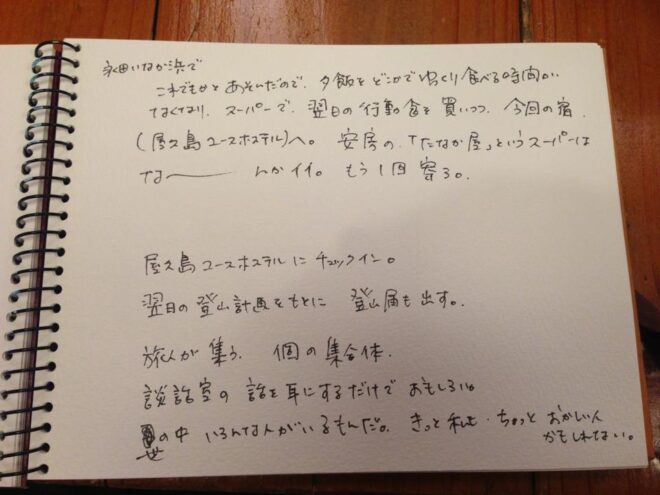 永田いなか浜で
これでもかとあそんだので、夕飯をどこかでゆっくり食べる時間が
なくなり、スーパーで、翌日の行動食を買いつつ、今回の宿、
(屋久島ユースホステル)へ。 安房の、「たなか屋」というスーパーは
な〜んかイイ。もう1回寄る。
屋久島ユースホステルにチェックイン。
翌日の登山計画をもとに 登山届も出す。
旅人が集う。個の集合体。
談話室の話を耳にするだけでおもしろい。
世の中いろんな人がいるもんだ。きっと私も・ちょっとおかしい人
かもしれない。